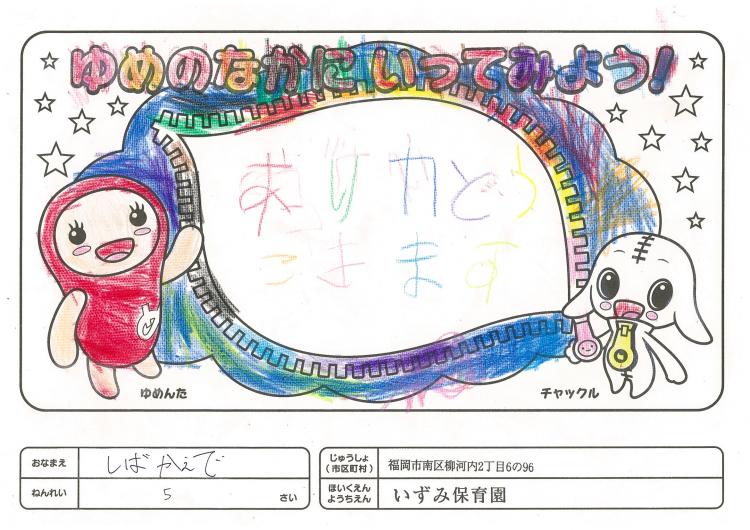 ゆめのなかにいってみよう!
ありがとう
こよます
ゆめんた
チャックル
おなまえ しばかえで
じゅうしょ(市区町村) 福岡市南区柳河内2丁目6の96
ねんれい 5 さい
ほいくえん ようちえん いずみ保育園